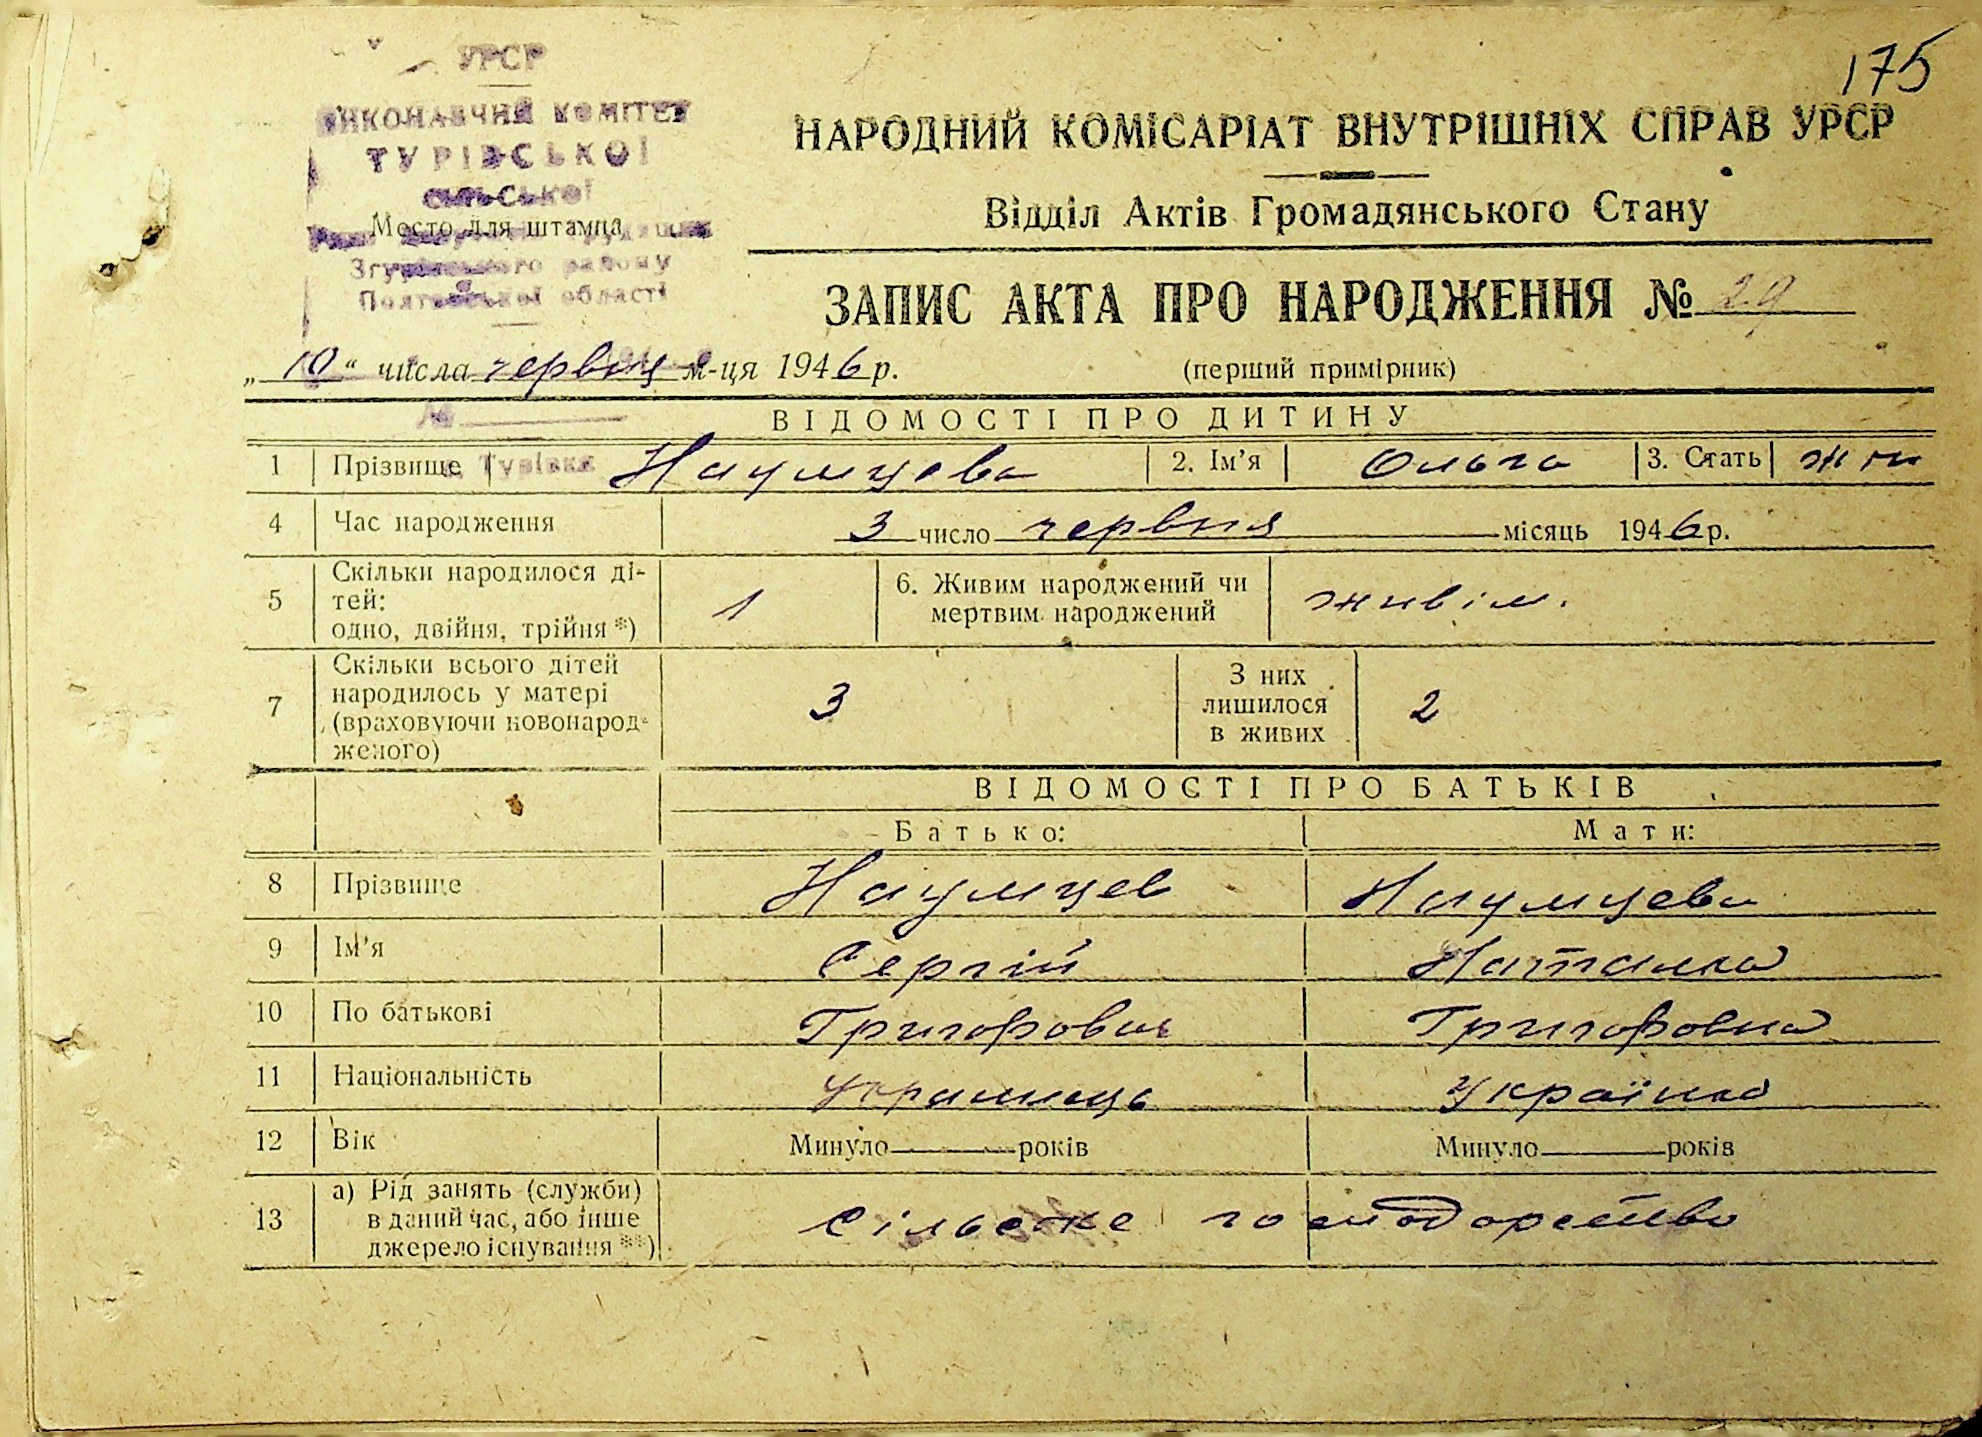 175
УРСР
ВИКОНАВЧИЙ КОМІТЕТ
ТУРІВСЬКОЇ
СІЛЬСЬКОЇ
Место для штампа
Згурівського району
Полтавської області
НАРОДНИЙ КОМІСАРІАТ ВНУТРІШНІХ СПРАВ УРСР
Відділ Актів Громадянського Стану
ЗАПИС АКТА ПРО НАРОДЖЕННЯ № 29
„10“ числа червня м-ця 1946 р. (перший примірник)
№
ВІДОМОСТІ ПРО ДИТИНУ
1 Прізвище Наумцева 2. Ім'я Ольга 3. Стать жін
с. Турівка
4 Час народження 3 число червня місяць 1946 р.
5 Скільки народилося ді-
тей:
одно, двійня, трійня *) 1
6. Живим народжений чи
мертвим народжений живім.
7 Скільки всього дітей
народилось у матері
(враховуючи новонарод-
женого) 3
З них
лишилося
в живих 2
ВІДОМОСТІ ПРО БАТЬКІВ
Батько: Мати:
8 Прізвище Наумцев Наумцева
9 Ім'я Сергій Наталка
10 По батькові Григорович Григоровна
11 Національність Українець Українка
12 Вік Минуло років Минуло років
13 а) Рід занять (служби)
в даний час, або інше
джерело існування **)
сільське господарство